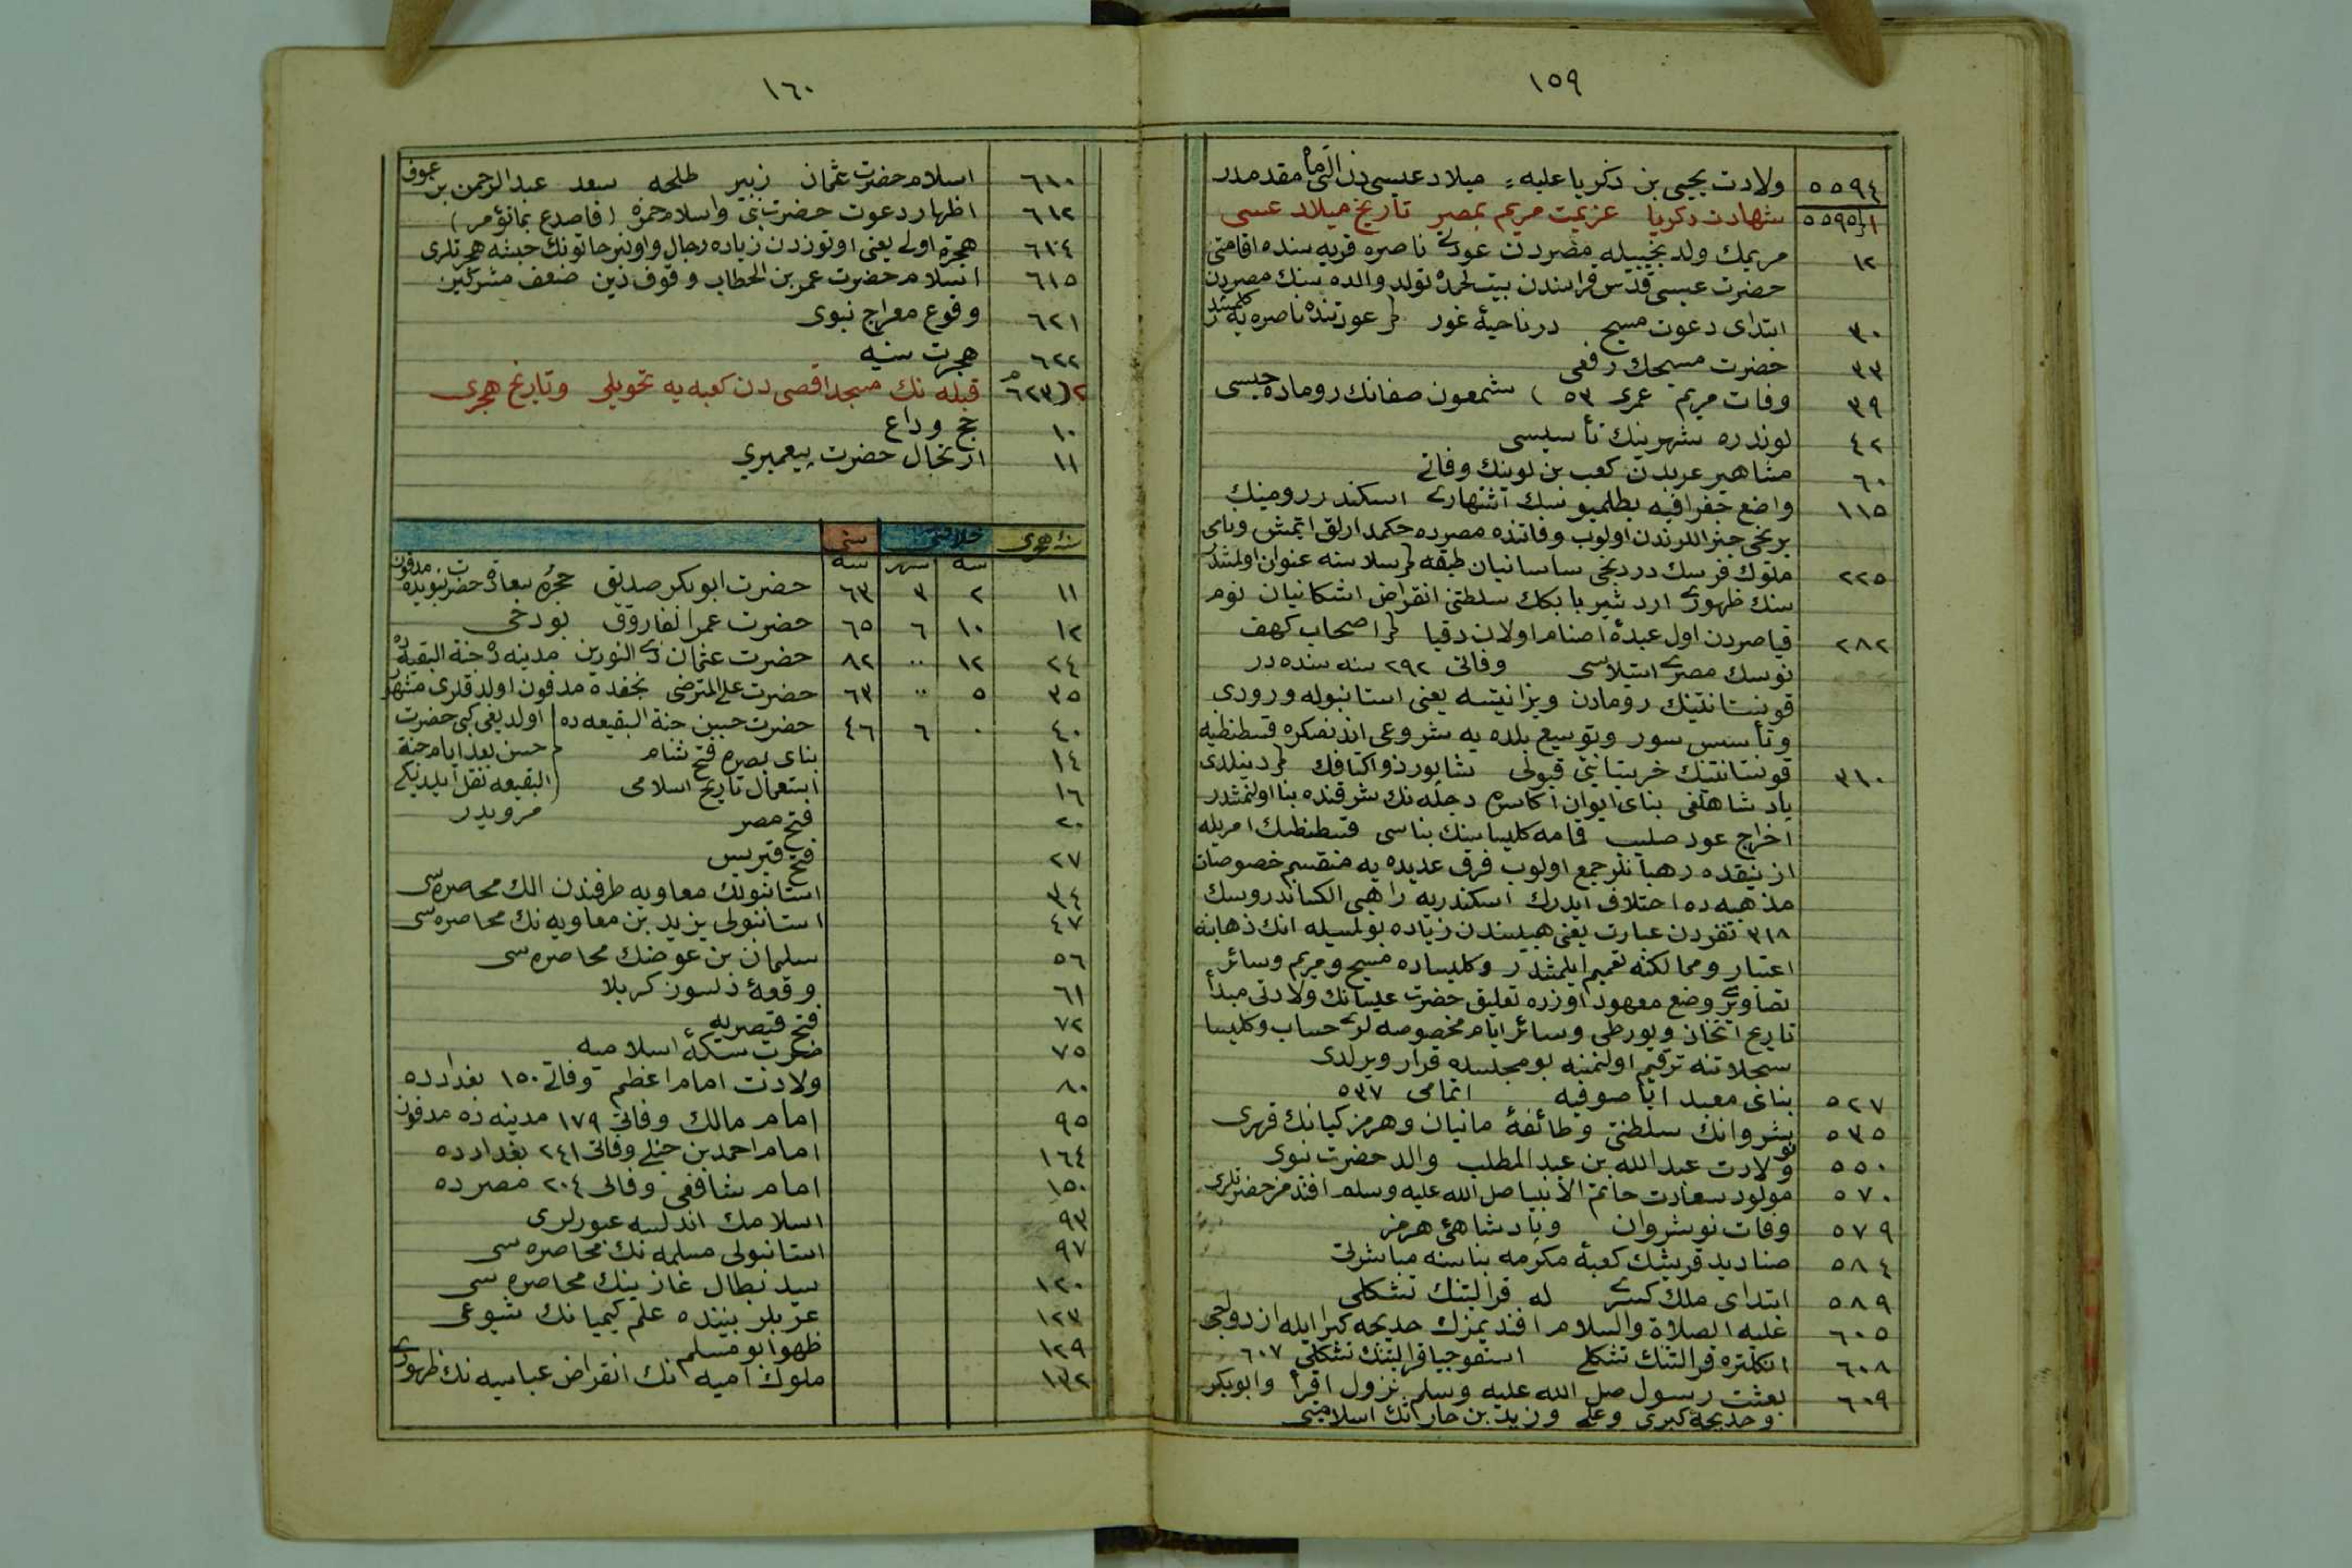 ١٥٩
٥٥٩٤ ولادت يحيى بن ذكريا عليه ميلاد عيسى دن التى ماه مقدمدر
٥٥٩٥ ١ شهادت ذكريا عزيمت مريم بمصر تاريخ ميلاد عيسى
١٢ مريمك ولد نجيبيله مصردن عودتى ناصره قريه سنده اقامتى
حضرت عيسى قدس قراسندن بيت لحمده تولد والده سنك مصردن
٣٠ ابتداى دعوت مسيح در ناحيۀ غور عودتنده ناصره يه كلمشدر
٣٣ حضرت مسيحك رفعى
٣٩ وفات مريم عمرى ٥٣ ) شمعون صفانك روماده حبسى
٤٢ لوندره شهرينك تأسيسى
٦٠ مشاهير عربدن كعب بن لوينك وفاتى
١١٥ واضع جغرافيه بطلميوسك اشتهارى اسكندر رومينك
برنجى جنراللرندن اولوب وفاتنده مصرده حكمدارلق ايتمش
٢٢٥ ملوك فرسك دردنجى ساسانيان طبقه سلاسنه عنوان اولمشدر
سنك ظهورى اردشير بابكك سلطنتى انقراض اشكانيان
٢٨٢ قياصردن اول عبدۀ اصنام اولان دقيا اصحاب كهف
نوسك مصرى استيلاسى وفاتى ٢٩٢ سنه سنده در
قونستانتينك رومادن ويزانتيسه يعنى استانبوله ورودى
وتأسيس سور وتوسيع بلده يه شروعى اندنصكره قسطنطيه
٣١٠ قونستانتينك خريستيانتى قبولى شابور ذو اكتافك دينلدى
پادشاهلغى بناى ايوان اكاسره دجله نك شرقنده بنا اولنمشدر
اخراج عود صليب قمامه كليساسينك بناسى قسطنطينك امريله
ازنيقده رهبانلر جمع اولوب فرق عديده يه منقسم خصوصات
مذهبيه ده اختلاف ايدرك اسكندريه راهبى الكساندروسك
٣١٨ نفردن عبارت يعنى هپسندن زياده بولمسيله انك ذهابنه
اعتبار وممالكنه تعميم ايلمشدر وكليساده مسيح ومريم وسائر
تصاويرى وضع معهود اوزره تعليق حضرت عيسانك ولادتى مبدأ
تاريخ اتخاذ وپورطى وسائر ايام مخصوصه لرى حساب وكليسا
سجلاتنه ترقيم اولنمنه بو مجلسده قرار ويرلدى
٥٢٧ بناى معبد ايا صوفيه اتمامى ٥٣٧
٥٣٥ نوشروانك سلطنتى وطائفۀ مانيان وهرمز كيانك قهرى
٥٥٠ ولادت عبد الله بن عبد المطلب والد حضرت نبوى
٥٧٠ مولود سعادت خاتم الانبيا صلى الله عليه وسلم افندمز حضرتلرى
٥٧٩ وفات نوشروان وپادشاهئ هرمز
٥٨٤ صناديد قريشك كعبۀ مكرمه بناسنه مباشرتى
٥٨٩ ابتداى ملك كسرى له قرالتنك تشكلى
٦٠٥ عليه الصلاة والسلام افنديمزك خديجه كبرا ايله ازدواجى
٦٠٨ انكلتره قرالتنك تشكلى قرالتنك تشكلى ٦٠٧
٦٠٩ بعثت رسول صلى الله عليه وسلم نزول اقرأ وابوبكر
وخديجۀ كبرى وعلى وزيد بن حارثنك اسلاميتى
١٦٠
٦١٠ اسلام حضرت عثمان زبير طلحه سعد عبد الرحمن بن عوف
٦١٢ اظهار دعوت حضرت نبى واسلام حمزه (فاصدع بما تؤمر)
٦١٤ هجرة اولى يعنى اوتوزدن زياده رجال واونبر خاتونك حبشه هجرتلرى
٦١٥ اسلام حضرت عمر بن الخطاب وقوف دين ضعف مشركين
٦٢١ وقوع معراج نبوى
٦٢٢ هجرت سنيه
٢)٦٢٣م قبله نك مسجد اقصى دن كعبه يه تحويلى وتاريخ هجرى
١٠ حج وداع
١١ ارتحال حضرت پيغمبرى
سنۀ هجرى خلافتى سنى
سنه شهر سنه
١١ ٢ ٣ ٦٣ حضرت ابو بكر صديق حجرۀ سعادت حضرت نبويده مدفون
١٢ ١٠ ٦ ٦٥ حضرت عمر الفاروق بو دخى
٢٤ ١٢ ٠٠ ٨٢ حضرت عثمان ذى النورين مدينه ده جنة البقيعده
٣٥ ٥ ٠٠ ٦٣ حضرت على المرتضى نجفده مدفون اولدقلرى مشهر
٤٠ ٠ ٦ ٤٦ حضرت حسين جنة البقيعه ده اولديغى كبى حضرت
١٤ بناى بصره فتح شام حسن بعد ايام جنة
١٦ استعمال تاريخ اسلامى البقيعه نقل ايلديكى
٢٠ فتح مصر مرويدر
٢٧ فتح قبريس
٣٤ استانبولك معاويه طرفندن الك محاصره سى
٤٧ استانبولى يزيد بن معاويه نك محاصره سى
٥٦ سلمان بن عوضك محاصره سى
٦١ وقعۀ دلسوز كربلا
٧٢ فتح قيصريه
٧٥ ضرب سكۀ اسلاميه
٨٠ ولادت امام اعظم وفاتى ١٥٠ بغدادده
٩٥ امام مالك وفاتى ١٧٩ مدينه ده مدفون
١٦٤ امام احمد بن حنبلى وفاتى ٢٤١ بغدادده
١٥٠ امام شافعى وفاتى ٢٠٤ مصرده
٩٣ اسلامك اندلسه عبورلرى
٩٧ استانبولى مسلمه نك محاصره سى
١٢٠ سيد بطال غازينك محاصره سى
١٢٣ عربلر بيننده علم كيميانك شيوعى
١٢٩ ظهور ابو مسلم
١٣٢ ملوك اميه انك انقراض عباسيه نك ظهورى